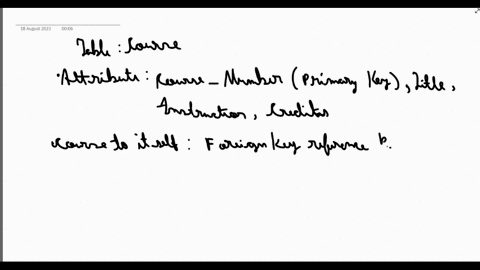 18 August 2023 00:06
Table : Course
• Attribute : Course_Number (Primary Key), Title,
Instruction, Creditas
Course to itself : Foriegn Key reference b.